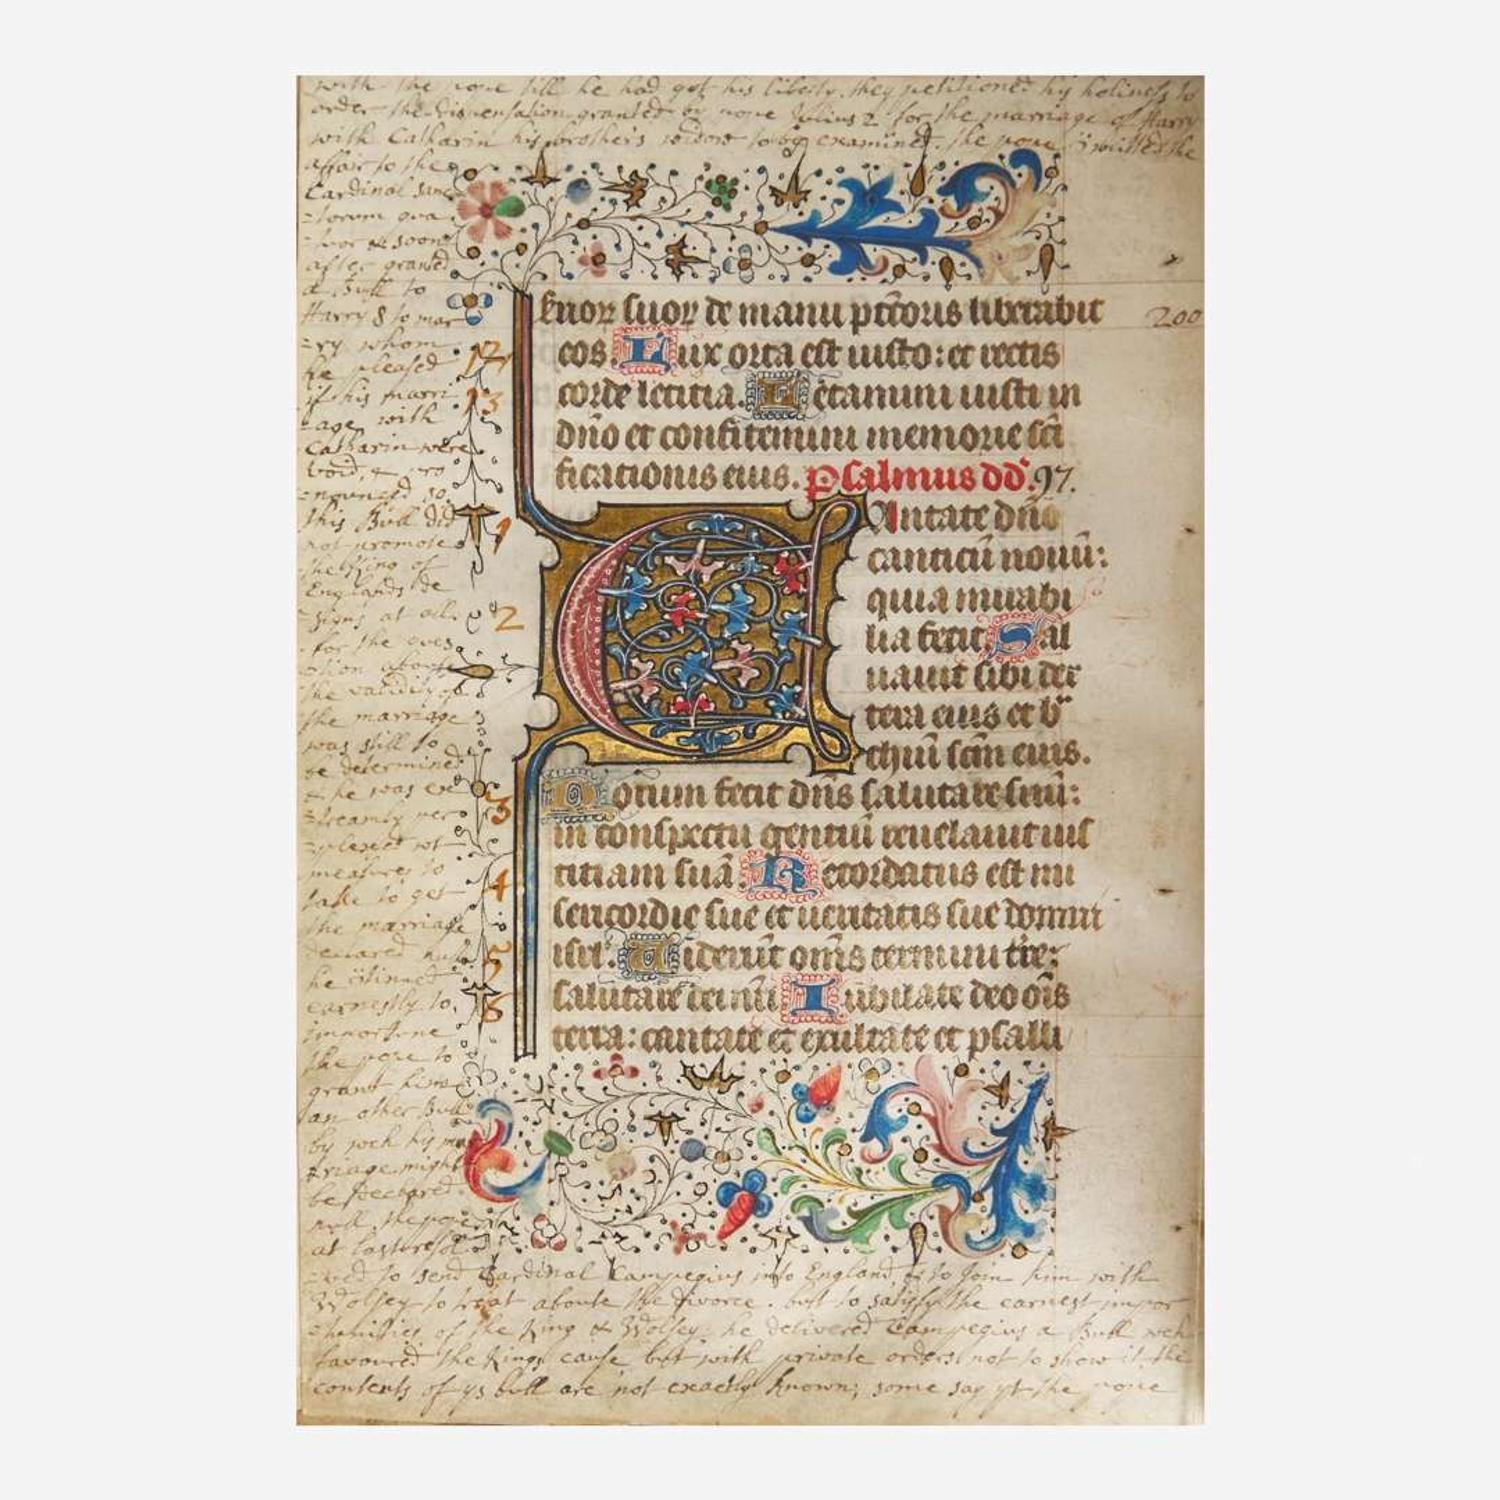 with the pope till he had got his liberty. they petitioned his holiness to
order the dispensation granted by pope Julius 2 for the marriage of Harry
with Catharin his brother's widow to be examined. the pope
affair to the
Cardinal Sanc
-torum qua
-tuor & soon
after granted
a Bull to
Harry 8 to mar
-ry whom
he pleased
if his marri
-age with
Catharin were
void, & pro
-nounced so.
this Bull did
not promote
the King of
Englands de
-signs at all.
for the ques
-tion about
the validity of
the marriage
was still to
be determined
& he was ex
-treamly per
-plexed wt
measures to
take to get
the marriage
declared null
he
earnestly to
importune
the pope to
grant him
an other Bull
by wch his ma
-rriage might
be declared
null. the pope
at last resol
-ved to send Cardinal Campegius into England, & to join him with
Wolsey to treat aboute the divorce. but to satisfy the earnest impor
-tunities of the King & Wolsey, he delivered Campegius a Bull wch
favoured the Kings cause but with private orders not to show it. the
contents of ys bull are not exactly known; some say yt the pope
200
12
13
1
2
3
4
5
6
ctuoꝝ suoꝝ de manu pctoris liberabit
eos. Lux orta est iusto: et rectis
corde letitia. Letamini iusti in
dño et confitemini memorie sci
ficationis eius. Psalmus dd. 97.
Antate dño
canticū nouū:
quia mirabi
lia fecit. Sal
uauit sibi dex
tera eius et br
chiū scm eius.
Notum fecit dñs salutare suū:
in conspectu gentiū reuelauit ius
titiam suā. Recordatus est mi
sericordie sue et ueritatis sue domui
isrl. Uiderūt oms termini tre:
salutare dei nri. Iubilate deo ois
terra: cantate et exultate et psalli